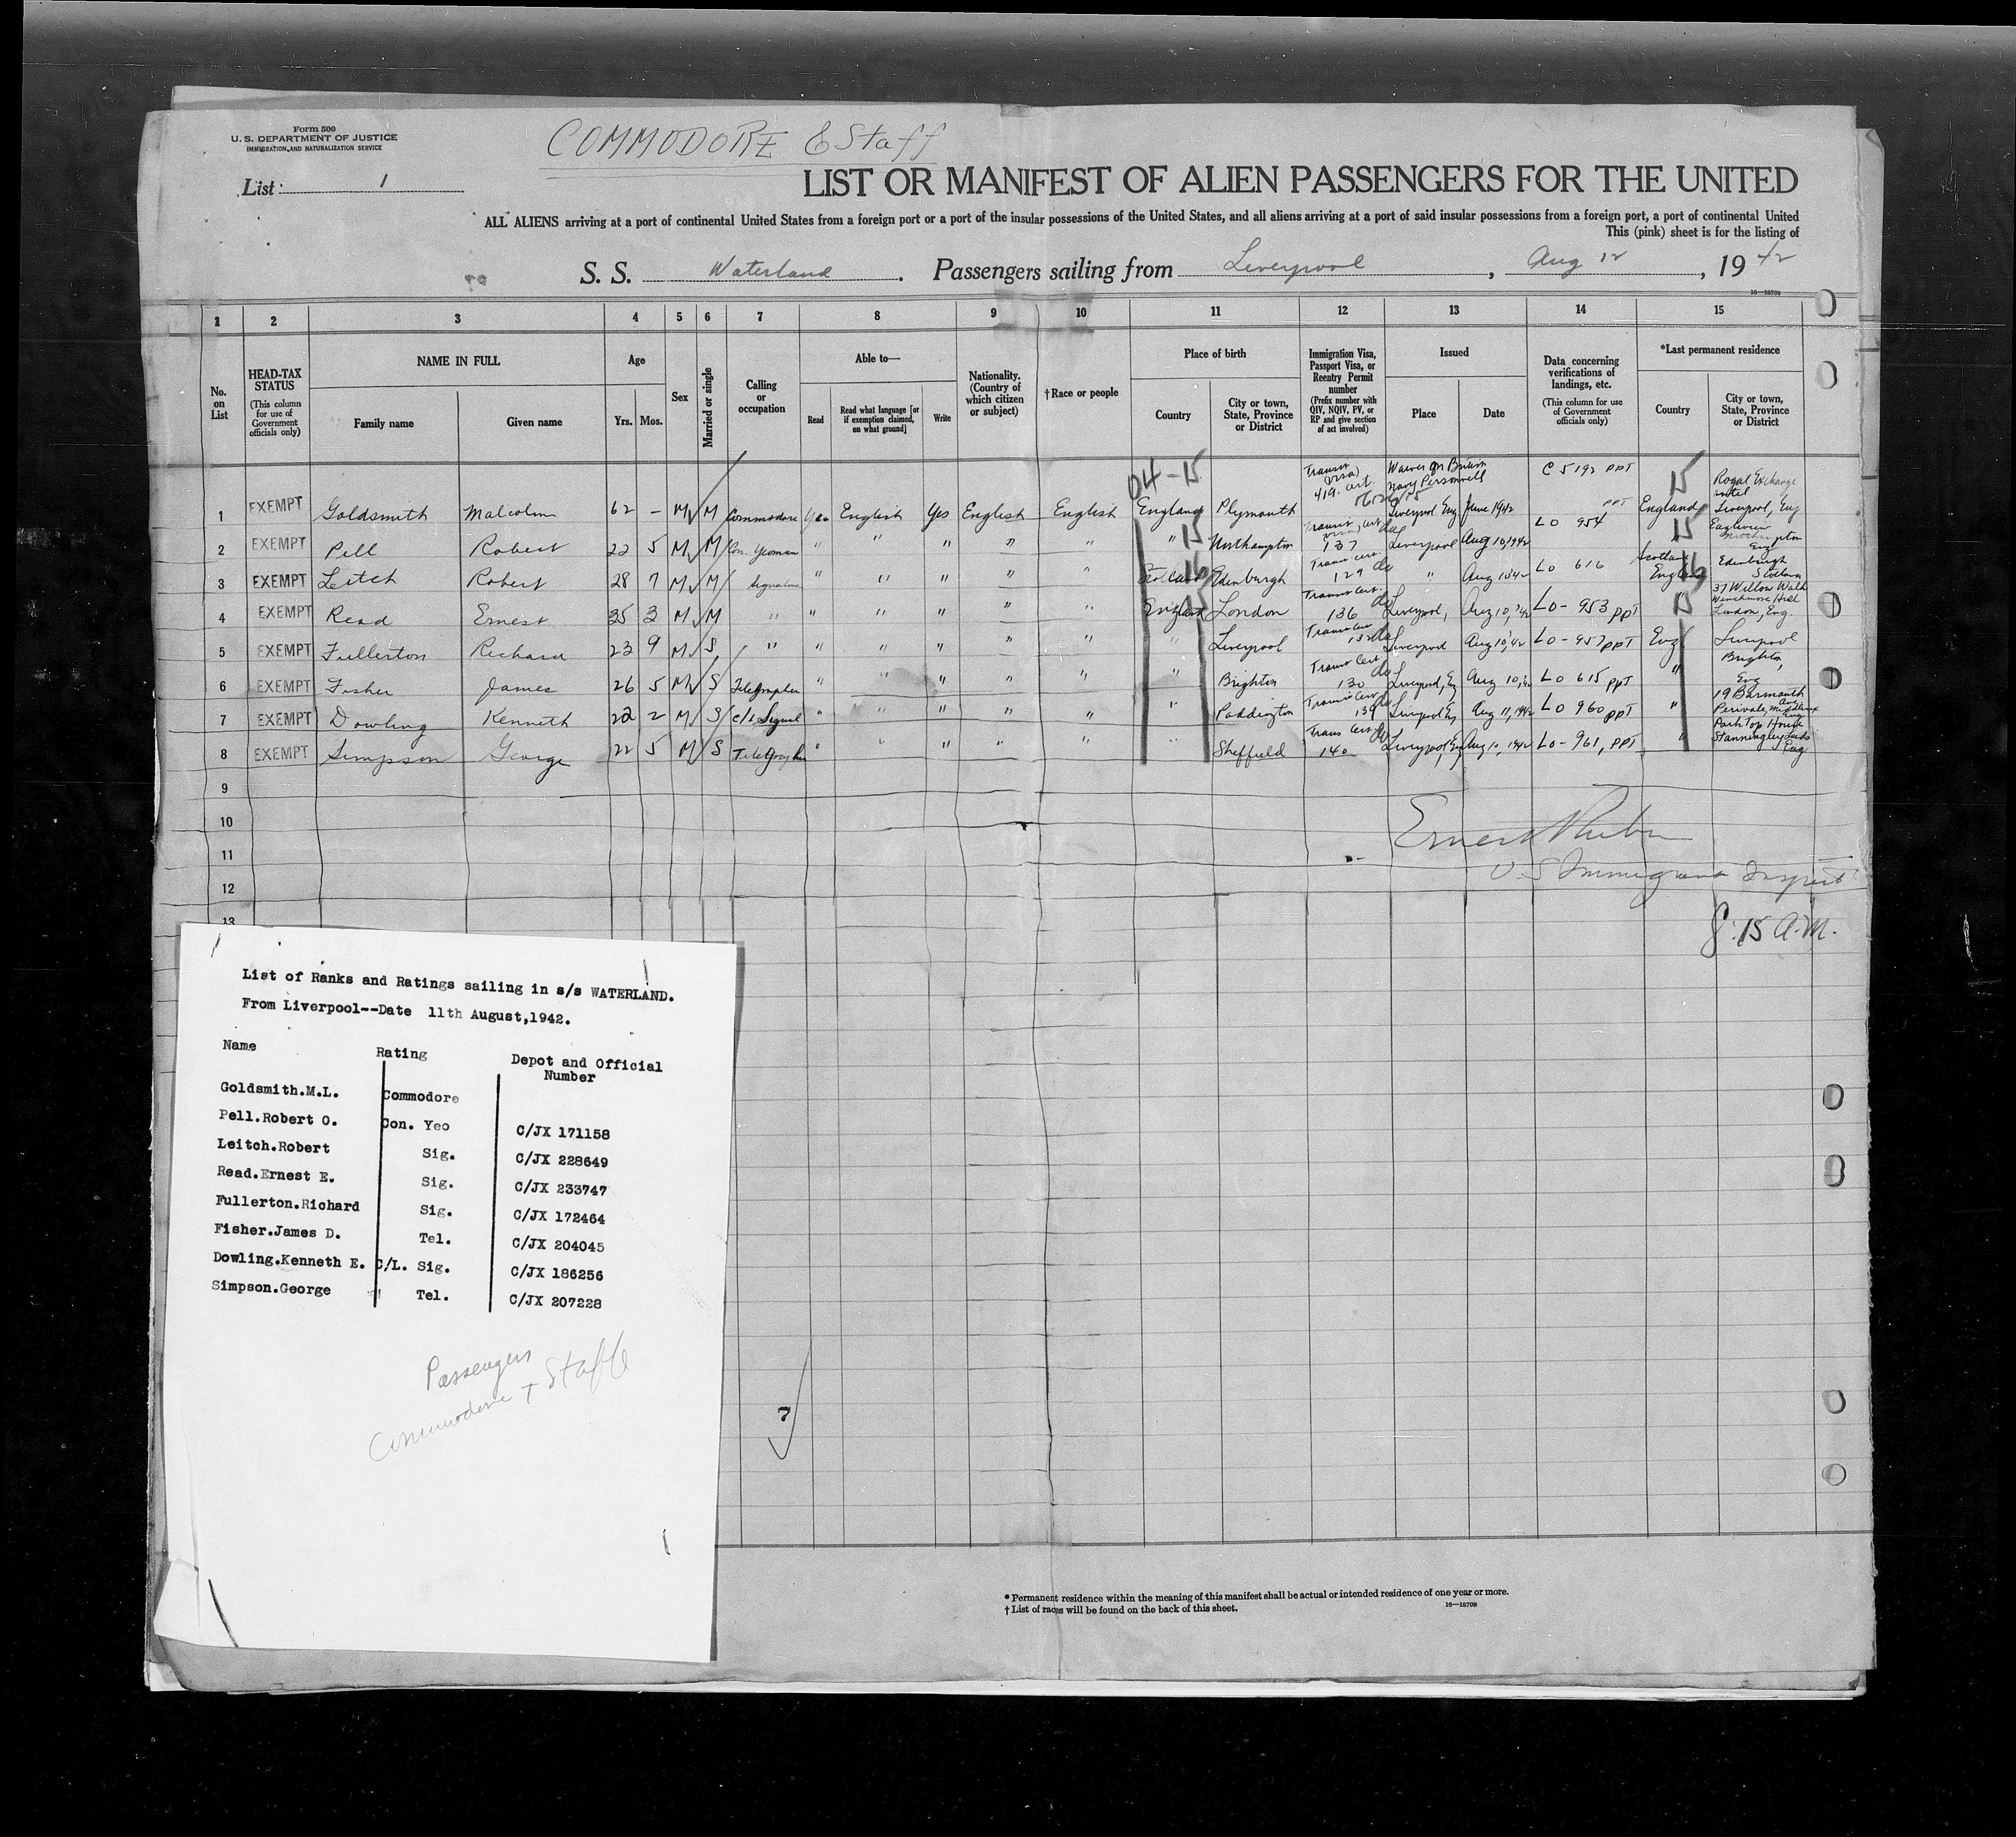 Form 500
U. S. DEPARTMENT OF JUSTICE
IMMIGRATION AND NATURALIZATION SERVICE
COMMODORE & Staff
List 1
LIST OR MANIFEST OF ALIEN PASSENGERS FOR THE UNITED
ALL ALIENS arriving at a port of continental United States from a foreign port or a port of the insular possessions of the United States, and all aliens arriving at a port of said insular possessions from a foreign port, a port of continental United
This (pink) sheet is for the listing of
S. S. Waterland. Passengers sailing from Liverpool, Aug 12, 1942
16—18709
1 2 3 4 5 6 7 8 9 10 11 12 13 14 15
No. on List
HEAD-TAX STATUS
(This column for use of Government officials only)
NAME IN FULL
Family name Given name
Age
Yrs. Mos.
Sex
Married or single
Calling or occupation
Able to—
Read
Read what language [or if exemption claimed, on what ground]
Write
Nationality. (Country of which citizen or subject)
† Race or people
Place of birth
Country
City or town, State, Province or District
Immigration Visa, Passport Visa, or Reentry Permit number
(Prefix number with QIV, NQIV, PV, or RP and give section of act involved)
Issued
Place Date
Data concerning verifications of landings, etc.
(This column for use of Government officials only)
*Last permanent residence
Country
City or town, State, Province or District
04-15
1 EXEMPT Goldsmith Malcolm 62 – M M Commodore Yes English Yes English English England Plymouth Transit Visa 419. cert. Waiver on British Navy Personnell Liverpool Eng June 1942 C 5192 PPT England 15 Royal Exchange Hotel Liverpool, Eng
2 EXEMPT Pell Robert 22 5 M M Con. Yeoman " " " " " " 15 Northampton Transit cert 137 Liverpool Aug 10, 1942 LO 954 PPT 15 Eng
3 EXEMPT Leitch Robert 28 7 M M Signalman " " " " " Scotland 16 Edinburgh Transit cert. 129 " Aug 10 42 LO 616 Scotland England 16 Edinburgh Scotland
4 EXEMPT Read Ernest 35 3 M M " " " " " " England 15 London Transit Cert. 136 Liverpool, Aug 10, 42 LO - 953 PPT 15 37 Willow Walk Winchmore Hill London, Eng.
5 EXEMPT Fullerton Richard 23 9 M S " " " " " " " Liverpool Transit Cert 132 Liverpool Aug 10, 42 LO - 957 PPT Eng Liverpool
6 EXEMPT Fisher James 26 5 M S Telegrapher " " " " " " Brighton Transit Cert 130 Liverpool, Eng Aug 10, 42 LO 615 PPT " Brighton, Eng
7 EXEMPT Dowling Kenneth 22 2 M S C/L Signal " " " " " " Paddington Transit Cert 139 Liverpool Eng Aug 11, 1942 LO 960 PPT " 19 Barmouth Ave Perivale, Middlesex Eng
8 EXEMPT Simpson George 22 5 M S Telegrapher " " " " " " Sheffield Trans Cert 140 Liverpool, Eng, Aug 10, 1942 LO - 961, PPT " Park Top House Stanningley Leeds Eng
9
10
11
12
13
Ernest
U S Immigrant Inspect
8:15 A.M.
List of Ranks and Ratings sailing in s/s WATERLAND.
From Liverpool--Date 11th August,1942.
Name Rating Depot and Official Number
Goldsmith.M.L. Commodore
Pell.Robert O. Con. Yeo C/JX 171158
Leitch.Robert Sig. C/JX 228649
Read.Ernest E. Sig. C/JX 233747
Fullerton.Richard Sig. C/JX 172464
Fisher.James D. Tel. C/JX 204045
Dowling.Kenneth E. C/L. Sig. C/JX 186256
Simpson.George Tel. C/JX 207228
Passengers
Commodore + Staff
7
* Permanent residence within the meaning of this manifest shall be actual or intended residence of one year or more.
† List of races will be found on the back of this sheet.
16—18709